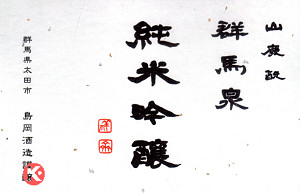 山廃酛
群馬泉
純米吟醸
群馬県太田市 島岡酒造謹醸